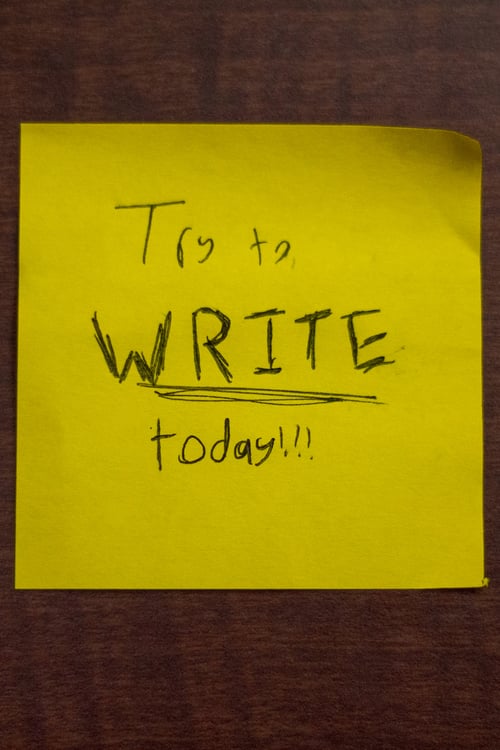 Try to
WRITE
today!!!